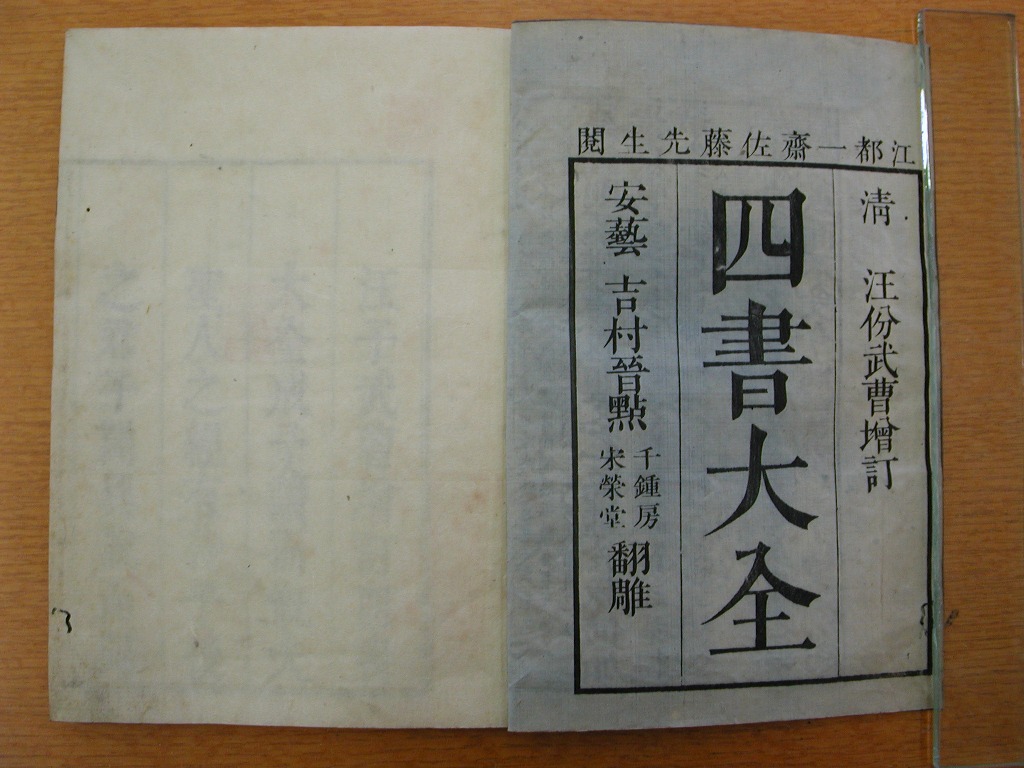 江都一齋佐藤先生閱
清 汪份武曹增訂
四書大全
安藝 吉村晉點
千鍾房
宋榮堂
翻雕